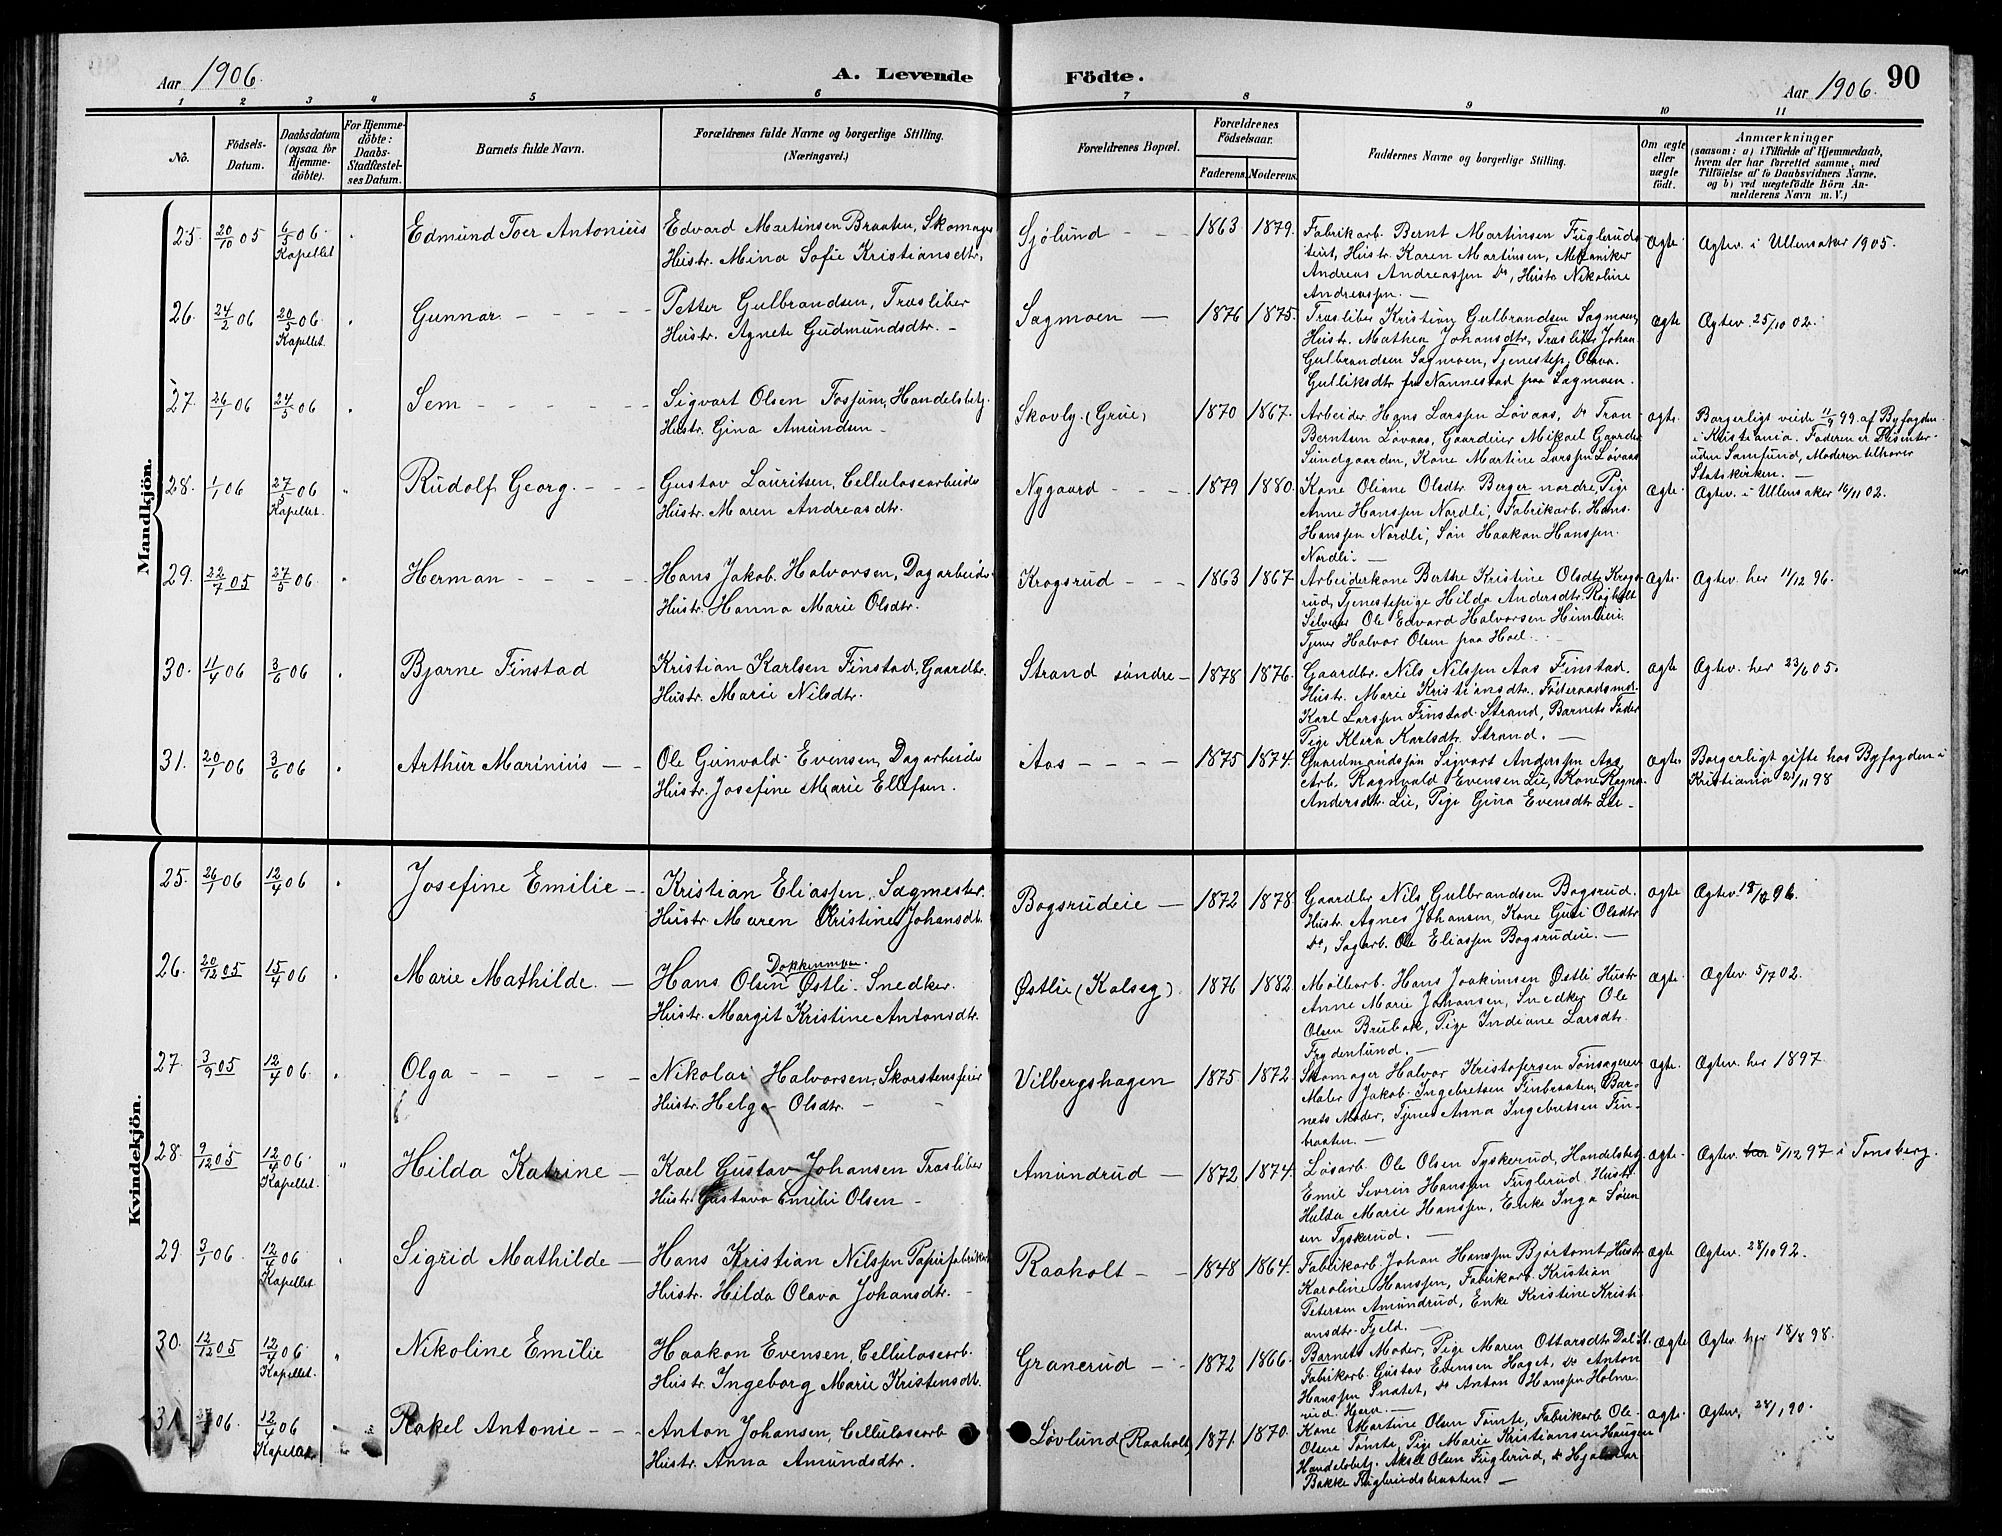 Aar 1906.
A. Levende
Födte.
Aar 1906.
90
1 2 3 4 5 6 7 8 9 10 11
No.
Födsels-Datum.
Daabsdatum (ogsaa for Hjemme-döbte).
For Hjemme-döbte: Daabs-Stadfæstel-ses Datum.
Barnets fulde Navn.
Forældrenes fulde Navne og borgerlige Stilling.
(Næringsvei.)
Forældrenes Bopæl.
Forældrenes Födselsaar.
Faderens. Moderens.
Faddernes Navne og borgerlige Stilling.
Om ægte eller uægte födt.
Anmærkninger
(saasom: a) i Tilfælde af Hjemmedaab, hvem der har forrettet samme, med Tilföielse af to Daabsvidners Navne, og b) ved uægtefödte Börn An-melderens Navn m. V.)
Mandkjön.
25. 20/10 05 6/5 06. Kapellet Edmund Toer Antonius
Edvard Martinsen Braaten, Skomager
Hustr. Mina Sofie Kristiansdtr,
Sjölund - - 1863 1879.
Fabrikarb. Bernt Martinsen Fuglerud-
teiet, Hustr. Karen Martinsen, Mekaniker
Andreas Andreassen Do, Hustr Nikoline
Andreassen. —
Ægte. Ægtev. i Ullensaker 1905.
26. 24/2 06 20/5 06. Kapellet. Gunnar - - - -
Petter Gulbrandsen, Træsliber
Hustr. Agnete Gudmundsdtr. -
Sagmoen — 1876 1875.
Træsliber Kristian Gulbrandsen Sagmoen,
Hustr. Mathea Johansdtr, Træsliber Johan
Gulbrandsen Sagmoen, Tjenestep, Olava
Gulliksdtr fra Nannestad paa Sagmoen.
Ægte Ægtev. 25/10 02.
27. 26/1 06 24/5 06 Sem - - - - -
Sigvart Olsen Fossum, Handelsbetj.
Hustr. Gina Amundsen -
Skovly. (Grue) 1870 1867.
Arbeider Hans Larssen Løvaas, Do Tron
Berntsen Løvaas, Gaardeier Mikael Gaarder
Sundgaarden, Kone Martine Larssen Løvaas
Ægte. Borgerligt viede 11/9 99 af Byfogden
i Kristiania. Faderen er Dissenter
uden Samfund, Moderen tilhører
Statskirken. —
28. 1/1 06 27/5 06 Kapellet. Rudolf Georg. - - -
Gustav Lauritsen, Cellulosearbeider
Hustr. Maren Andreasdtr.
Nygaard - - - 1879 1880.
Kone Oliane Olsdtr Berger nordre, Pige
Anne Hanssen Nordli, Fabrikarb. Hans
Hanssen Nordli, Søn Haakon Hanssen
Nordli. —
Ægte. Ægtev. i Ullensaker 16/11 02.
29. 22/7 05 27/5 06. Herman - - - - -
Hans Jakob Halvorsen, Dagarbeider
Hustr. Hanna Marie Olsdtr.
Krogsrud - - - 1863 1867
Arbeiderkone Berthe Kristine Olsdtr Krogs-
rud, Tjenestepige Hilda Andersdtr. Raaholt
Ole Edvard Halvorsen
Tjener Halvor Olsen paa Hoel.
Ægte. Ægtev. her 11/12 96.
30. 11/4 06 3/6 06 Bjarne Finstad
Kristian Karlsen Finstad, Gaardbr.
Hustr. Marie Nilsdtr.
Strand søndre - 1878 1876.
Gaardbr. Nils Nilssen Aas Finstad.
Hustr. Marie Kristiansdtr. Føderaadsmd.
Karl Larssen Finstad Strand, Barnets Fader
Pige Klara Karlsdtr. Strand. —
Ægte Ægtev. her 23/6 05.
31. 20/1 06 3/6 06 Arthur Marinius - -
Ole Gunvald Evensen, Dagarbeider
Hustr. Josefine Marie Ellefsen.
Aas - - - - 1875 1874.
Gaardmandssøn Sigvart Anderssen Aas,
Arb. Ragnvald Evensen Lie, Kone Ragna
Andersdtr. Lie, Pige Gina Evensdtr Lie —
Ægte Borgerligt gifte hos Byfogden i
Kristiania 21/11 98
Kvindekjön.
25. 26/1 06 12/4 06 Josefine Emilie —
Kristian Eliassen, Sagmester.
Hustr Maren Kristine Johansdtr.
Bogsrudeie — 1872 1878
Gaardbr Nils Gulbrandsen Bogsrud.
Hustr. Agnes Johansen, Kone Guri Olsdtr
Do, Sagarb. Ole Eliassen Bogsrudeie. —
Ægte Ægtev. 18/10 96.
26. 20/12 05 15/4 06 Marie Mathilde. —
Dokkenmoen.
Hans Olsen Østli. Snedker.
Hustr. Margit Kristine Antonsdtr.
Østlie (Kalseg) 1876 1882
Møllearb. Hans Joakimsen Østli Hustr
Anne Marie Johansen, Snedker Ole
Olsen Brubak, Pige Indiane Larsdtr.
Frydenlund. —
Ægte. Ægtev. 5/7 02.
27. 3/9 05 12/4 06. Olga - - - - -
Nikolai Halvorsen, Skorstensfeier
Hustr. Helga Olsdtr. - -
Vilbergshagen 1875. 1872.
Skomager Halvor Kristofersen Tonsageren
Maler Jakob Ingebretsen Finbraaten, Bar-
nets Moder, Tjener Anna Ingebretsen Fin-
braaten. —
Ægte. Ægtev. her 1897
28. 9/12 05 12/4 06. Kapellet. Hilda Katrine —
Karl Gustav Johansen Træsliber
Hustr. Gustava Emilie Olsen -
Amundrud — 1872 1874.
Løsarb. Ole Olsen Tyskerud, Handelsbetj.
Emil Sevrin Hanssen Fuglerud, Hustr
Hulda Marie Hanssen, Enke Inga Sören
sen Tyskerud. —
Ægte. Ægtev. her 5/12 97 i Tønsberg.
29. 3/1 06. 12/4 06 Kapellet. Sigrid Mathilde —
Hans Kristian Nilssen Papirfabrikarb
Hustr. Hilda Olava Johansdtr. -
Raaholt - - 1848 1864.
Fabrikarb Johan Hanssen Bjørtomt, Hustr
Karoline Hanssen, Fabrikarb. Kristian
Petersen Amundrud, Enke Kristine Kristi
ansdtr. Fjeld. —
Ægte Ægtev. 28/10 92.
30. 12/12 05 12/4 06. Kapellet. Nikoline Emilie
Haakon Evensen, Cellulosearb.
Hustr. Ingeborg Marie Kristensdtr.
Granerud - - 1872 1866.
Barnets Moder, Pige Maren Ottarsdtr
Fabrikarb. Gustav Evensen Haget, Do Anton
Hanssen Snatet, Do Anton Hanssen Holme
rud. Hjera. —
Ægte Ægtev. her 18/8 98.
31 06. 12/4 06 Kapellet Rakel Antonie - - -
Anton Johansen, Cellulosearb
Hustr. Anna Amundsdtr.
Løvlund (Raaholt) 1871. 1870.
Kone Martine Olsen Tomte, Fabrikarb. Ole
Olsen Tomte, Pige Marie Kristiansen Haugen
Handelsbetj. Aksel Olsen Fuglerud, Do Hjalmar
Bakke Fuglerudsbraaten. —
Ægte. Ægtev. 28/1 90.